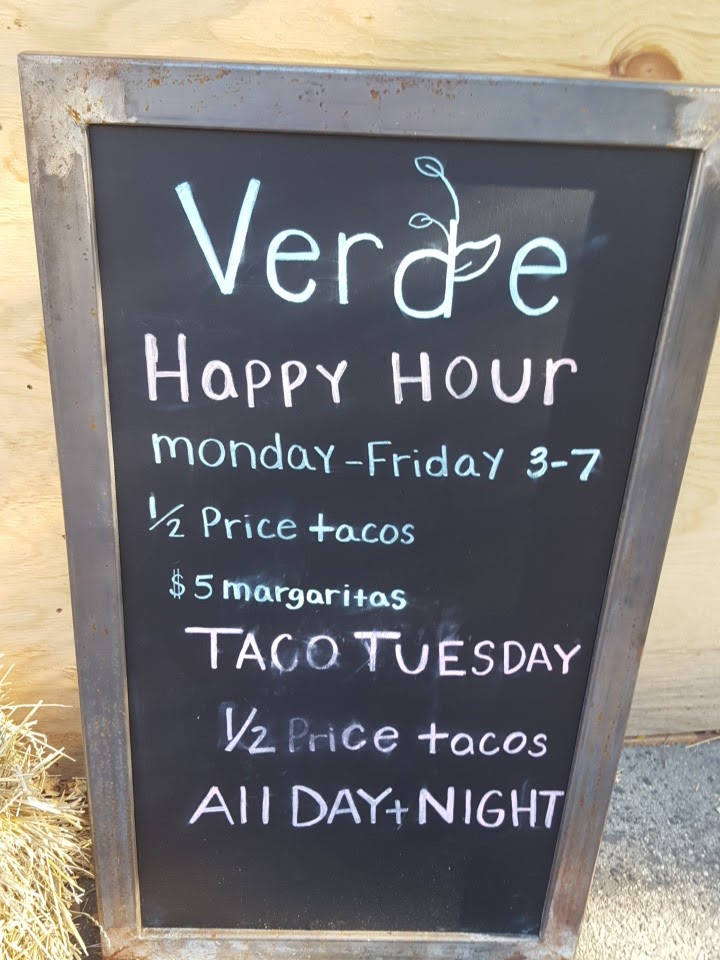 Verde
Happy Hour
monday-Friday 3-7
1/2 Price tacos
$5 margaritas
TACO TUESDAY
1/2 Price tacos
All DAY+NIGHT